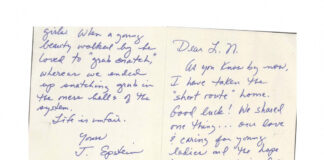 girls. When a young
beauty walked by he
loved to "grab snatch,"
whereas we ended
up snatching grub in
the mess halls of the
system.
Life is unfair.
Yours
J. Epstein
Dear L. N.
As you know by now,
I have taken the
"short route" home.
Good luck! We shared
one thing... our love
& caring for young
ladies and the hope